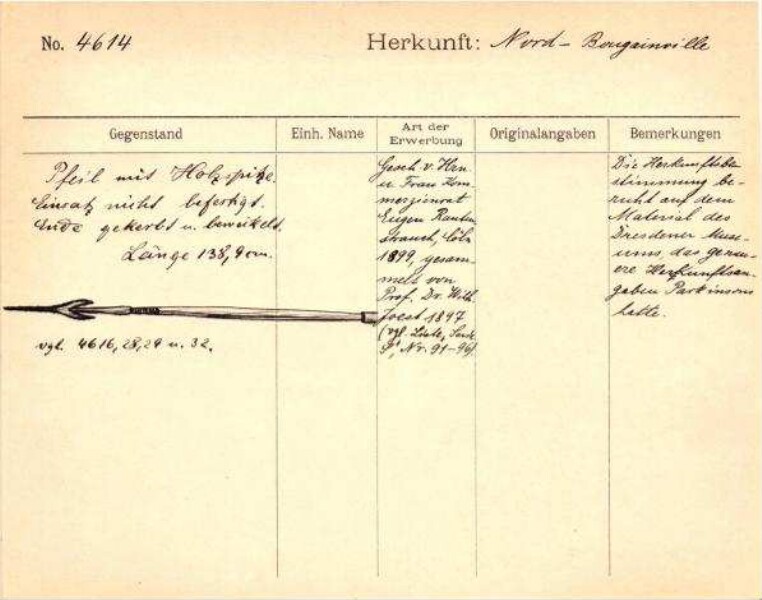 No. 4614
Herkunft: Nord- Bougainville
Gegenstand
Einh. Name
Art der Erwerbung
Originalangaben
Bemerkungen
Pfeil mit Holzspitze.
Einsatz nicht befestigt.
Ende gekerbt u. bewickelt.
Länge 138,9 cm.
vgl. 4616, 28, 29 u. 32.
Gesch. v. Hrn.
u. Frau Kom-
merzienrat
Eugen Rauten
strauch, Cöln
1899, gesam-
melt von
Prof. Dr. Wilh.
Joest 1897
(vgl. Liste,
Nr. 91-96).
Die Herkunftsbe
stimmung be-
ruht auf dem
Material des
Dresdener Muse-
ums, das genau-
ere Herkunftsan-
gaben Parkinsons
hatte.